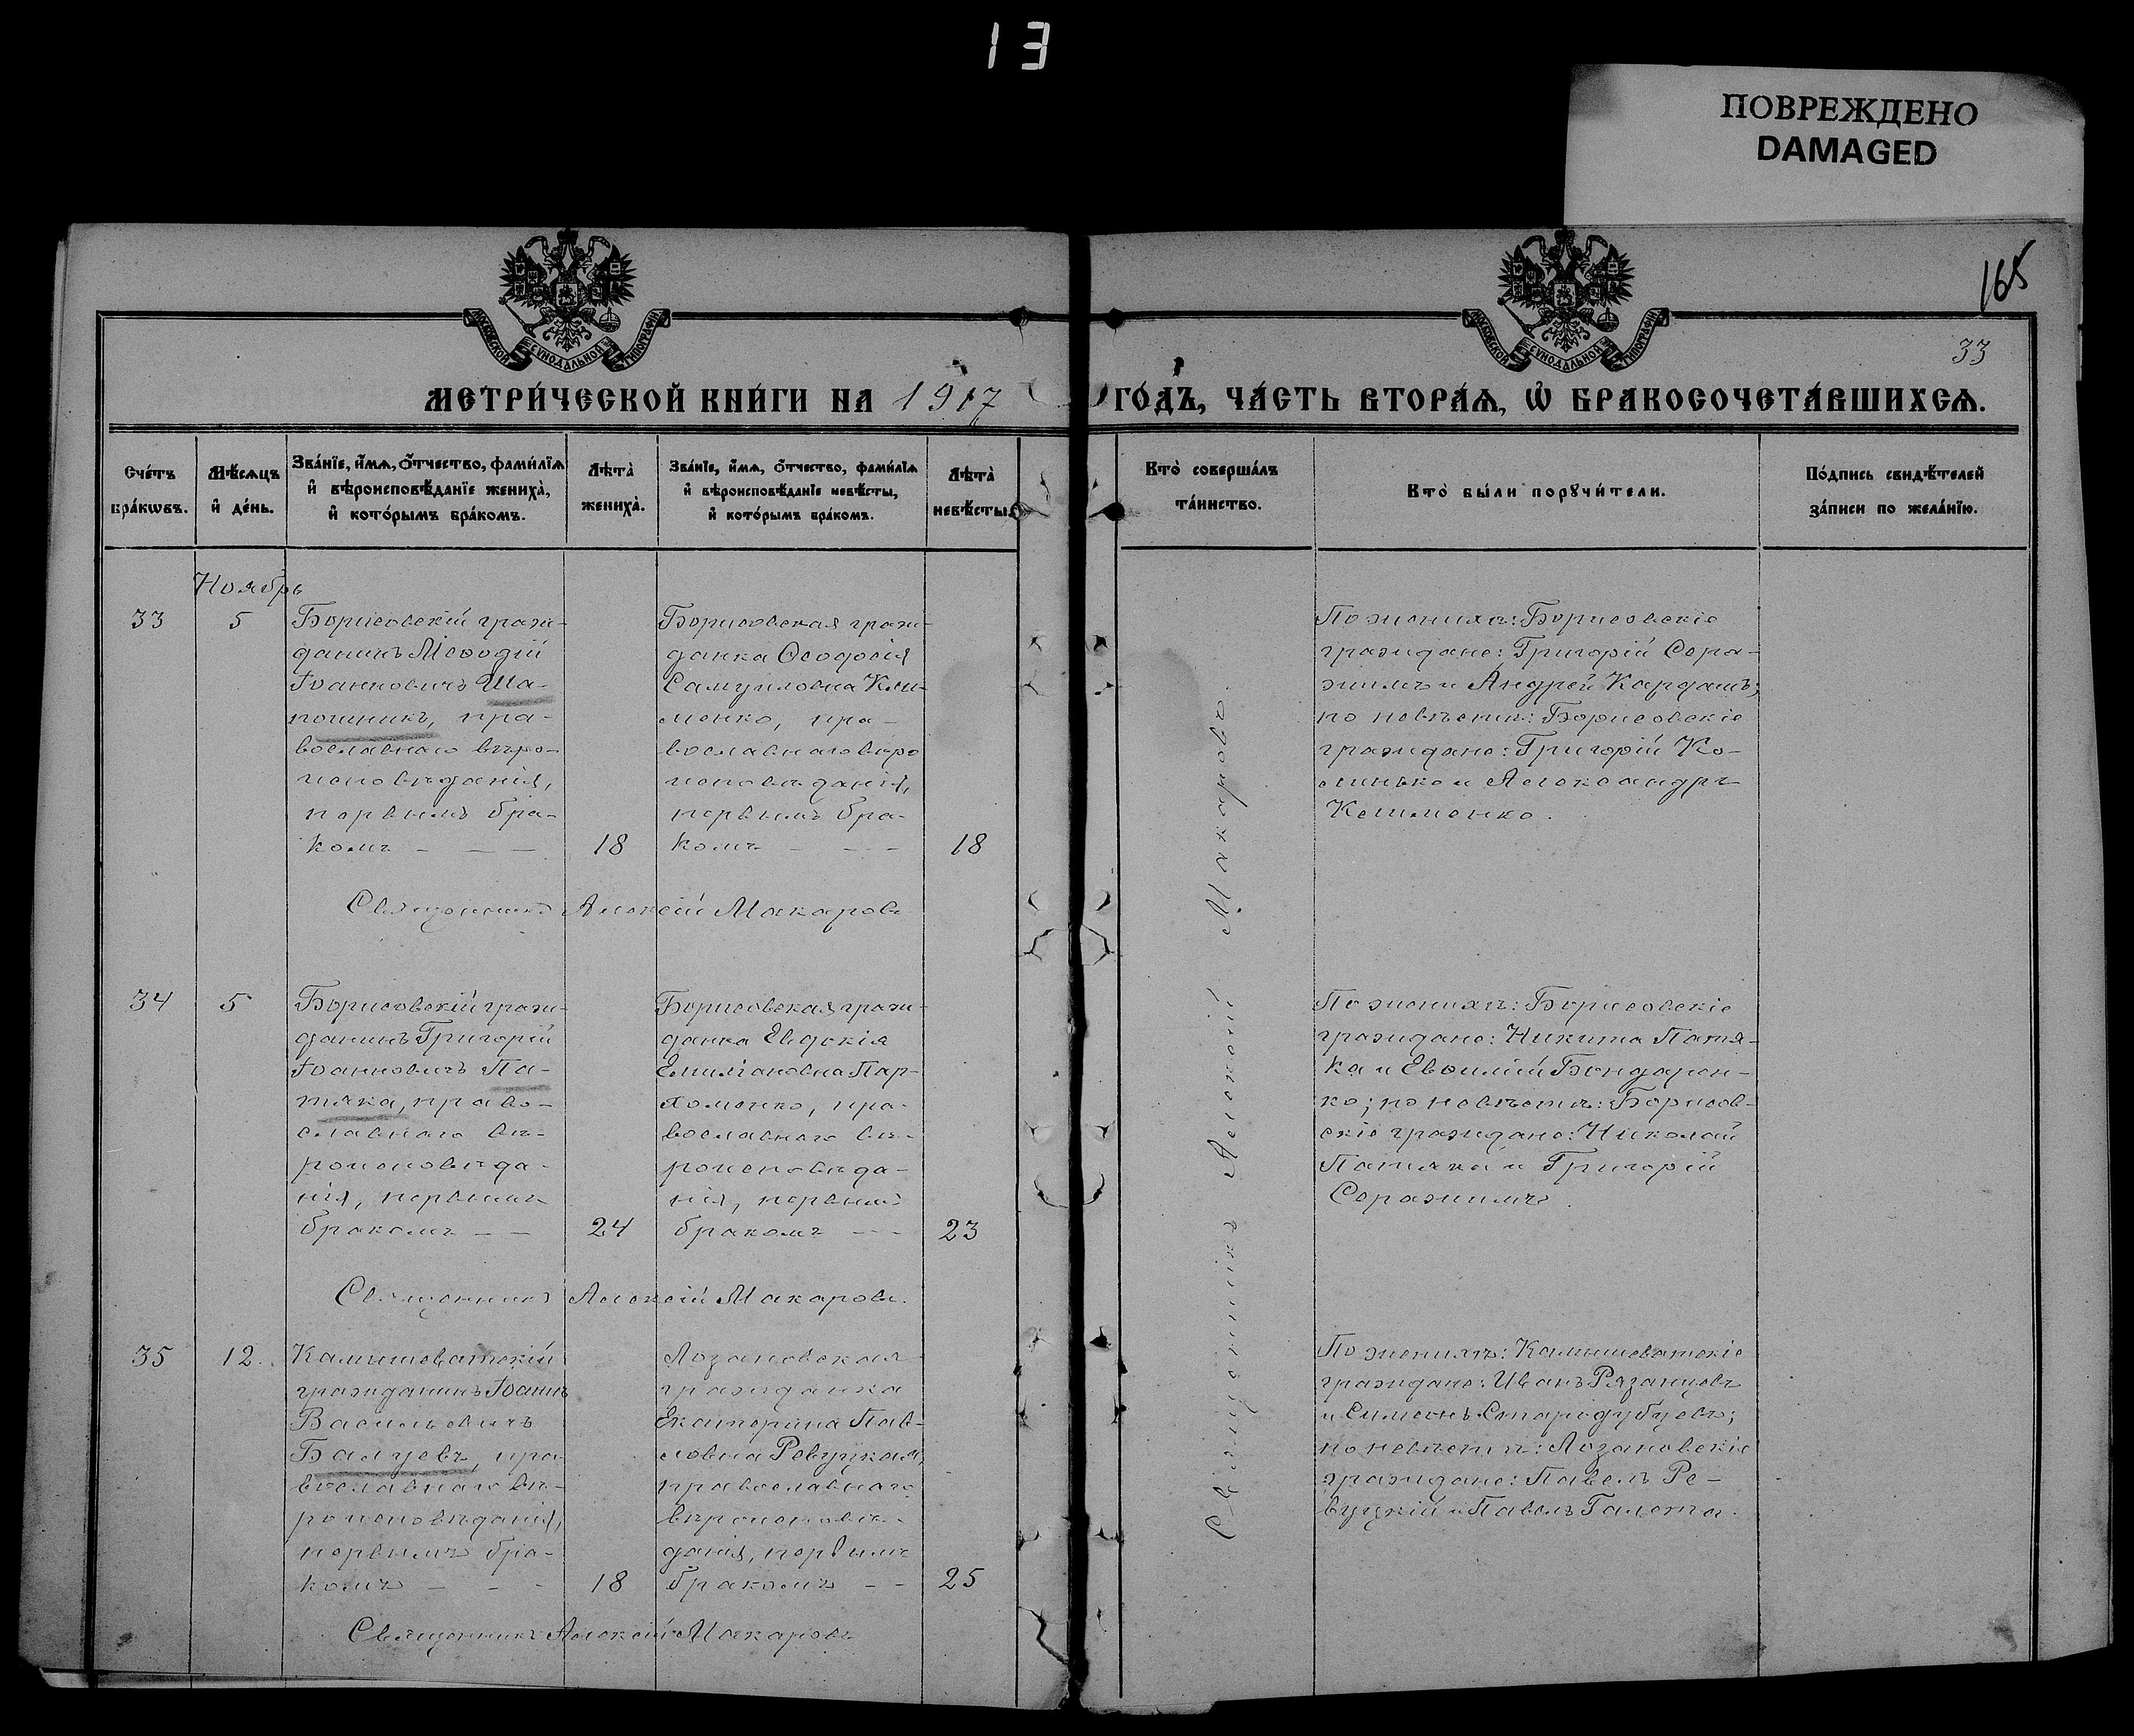 13
ПОВРЕЖДЕНО
DAMAGED
165
МОСКОВСКОЙ СУНОДАЛЬНОЙ ТИПОГРАФІИ
МОСКОВСКОЙ СУНОДАЛЬНОЙ ТИПОГРАФІИ
33
МЕТРИ́ЧЕСКОЙ КНИ́ГИ НА 1917 ГО́ДЪ, ЧА́СТЬ ВТОРА́Ѧ, Ѽ БРАКОСОЧЕТА́ВШИХСѦ.
Сче́тъ
бра́кѡвъ.
Мѣ́сѧцъ
и҆ де́нь.
Зва́нїе, и҆́мѧ, ѻ҆́тчество, фами́лїѧ
и҆ вѣроисповѣ́данїе жениха̀,
и҆ кото́рымъ бра́комъ.
Лѣта̀
жениха̀.
Зва́нїе, и҆́мѧ, ѻ҆́тчество, фами́лїѧ
и҆ вѣроисповѣ́данїе невѣ́сты,
и҆ кото́рымъ бра́комъ.
Лѣта̀
невѣ́сты.
Кто̀ соверша́лъ
та́инство.
Кто̀ бы́ли порꙋчи́тели.
По́дпись свидѣ́телей
за́писи по жела́нїю.
Ноябрь
33
5
Борисовскій граж-
данинъ Меѳодій
Іоанновичъ Ша-
почникъ, пра-
вославнаго вѣро-
исповѣданія,
первымъ бра-
комъ - - -
18
Борисовская граж-
данка Ѳеодосія
Самуиловна Кли-
менко, пра-
вославнаго вѣро
исповѣданія,
первымъ бра-
комъ - - -
18
По женихѣ: Борисовскіе
граждане: Григорій Сера-
жимъ и Андрей Кардашъ;
по невѣстѣ: Борисовскіе
граждане: Григорій Ко-
линько и Александръ
Клименко.
Священникъ Алексій Макаровъ
34
5
Борисовскій граж-
данинъ Григорій
Іоанновичъ Па-
тяка, право-
славнаго вѣ-
роисповѣда-
нія, первымъ
бракомъ - -
24
Борисовская граж-
данка Евдокія
Емиліановна Пар-
хоменко, пра-
вославнаго вѣ-
роисповѣда-
нія, первымъ
бракомъ - - -
23
По женихѣ: Борисовскіе
граждане: Никита Патя-
ка и Евѳимій Бондарен-
ко; по невѣстѣ: Борисов-
скіе граждане: Николай
Патяка и Григорій
Серажимъ.
Священникъ Алексій Макаровъ.
35
12.
Камышеватскій
гражданинъ Іоаннъ
Васильевичъ
Балуевъ, пра-
вославнаго вѣ-
роисповѣданія,
первымъ бра-
комъ - - -
18
Лозановская
гражданка
Екатерина Пав-
ловна Ревуцкая,
православнаго
вѣроисповѣ-
данія, первымъ
бракомъ - -
25
По женихѣ: Камышеватскіе
граждане: Иванъ Рязанцевъ
и Симеонъ Стародубцевъ;
по невѣстѣ: Лозановскіе
граждане: Павелъ Ре-
вуцкій и Павелъ Галота.
Священникъ Алексій Макаровъ
Священникъ Алексій Макаровъ.